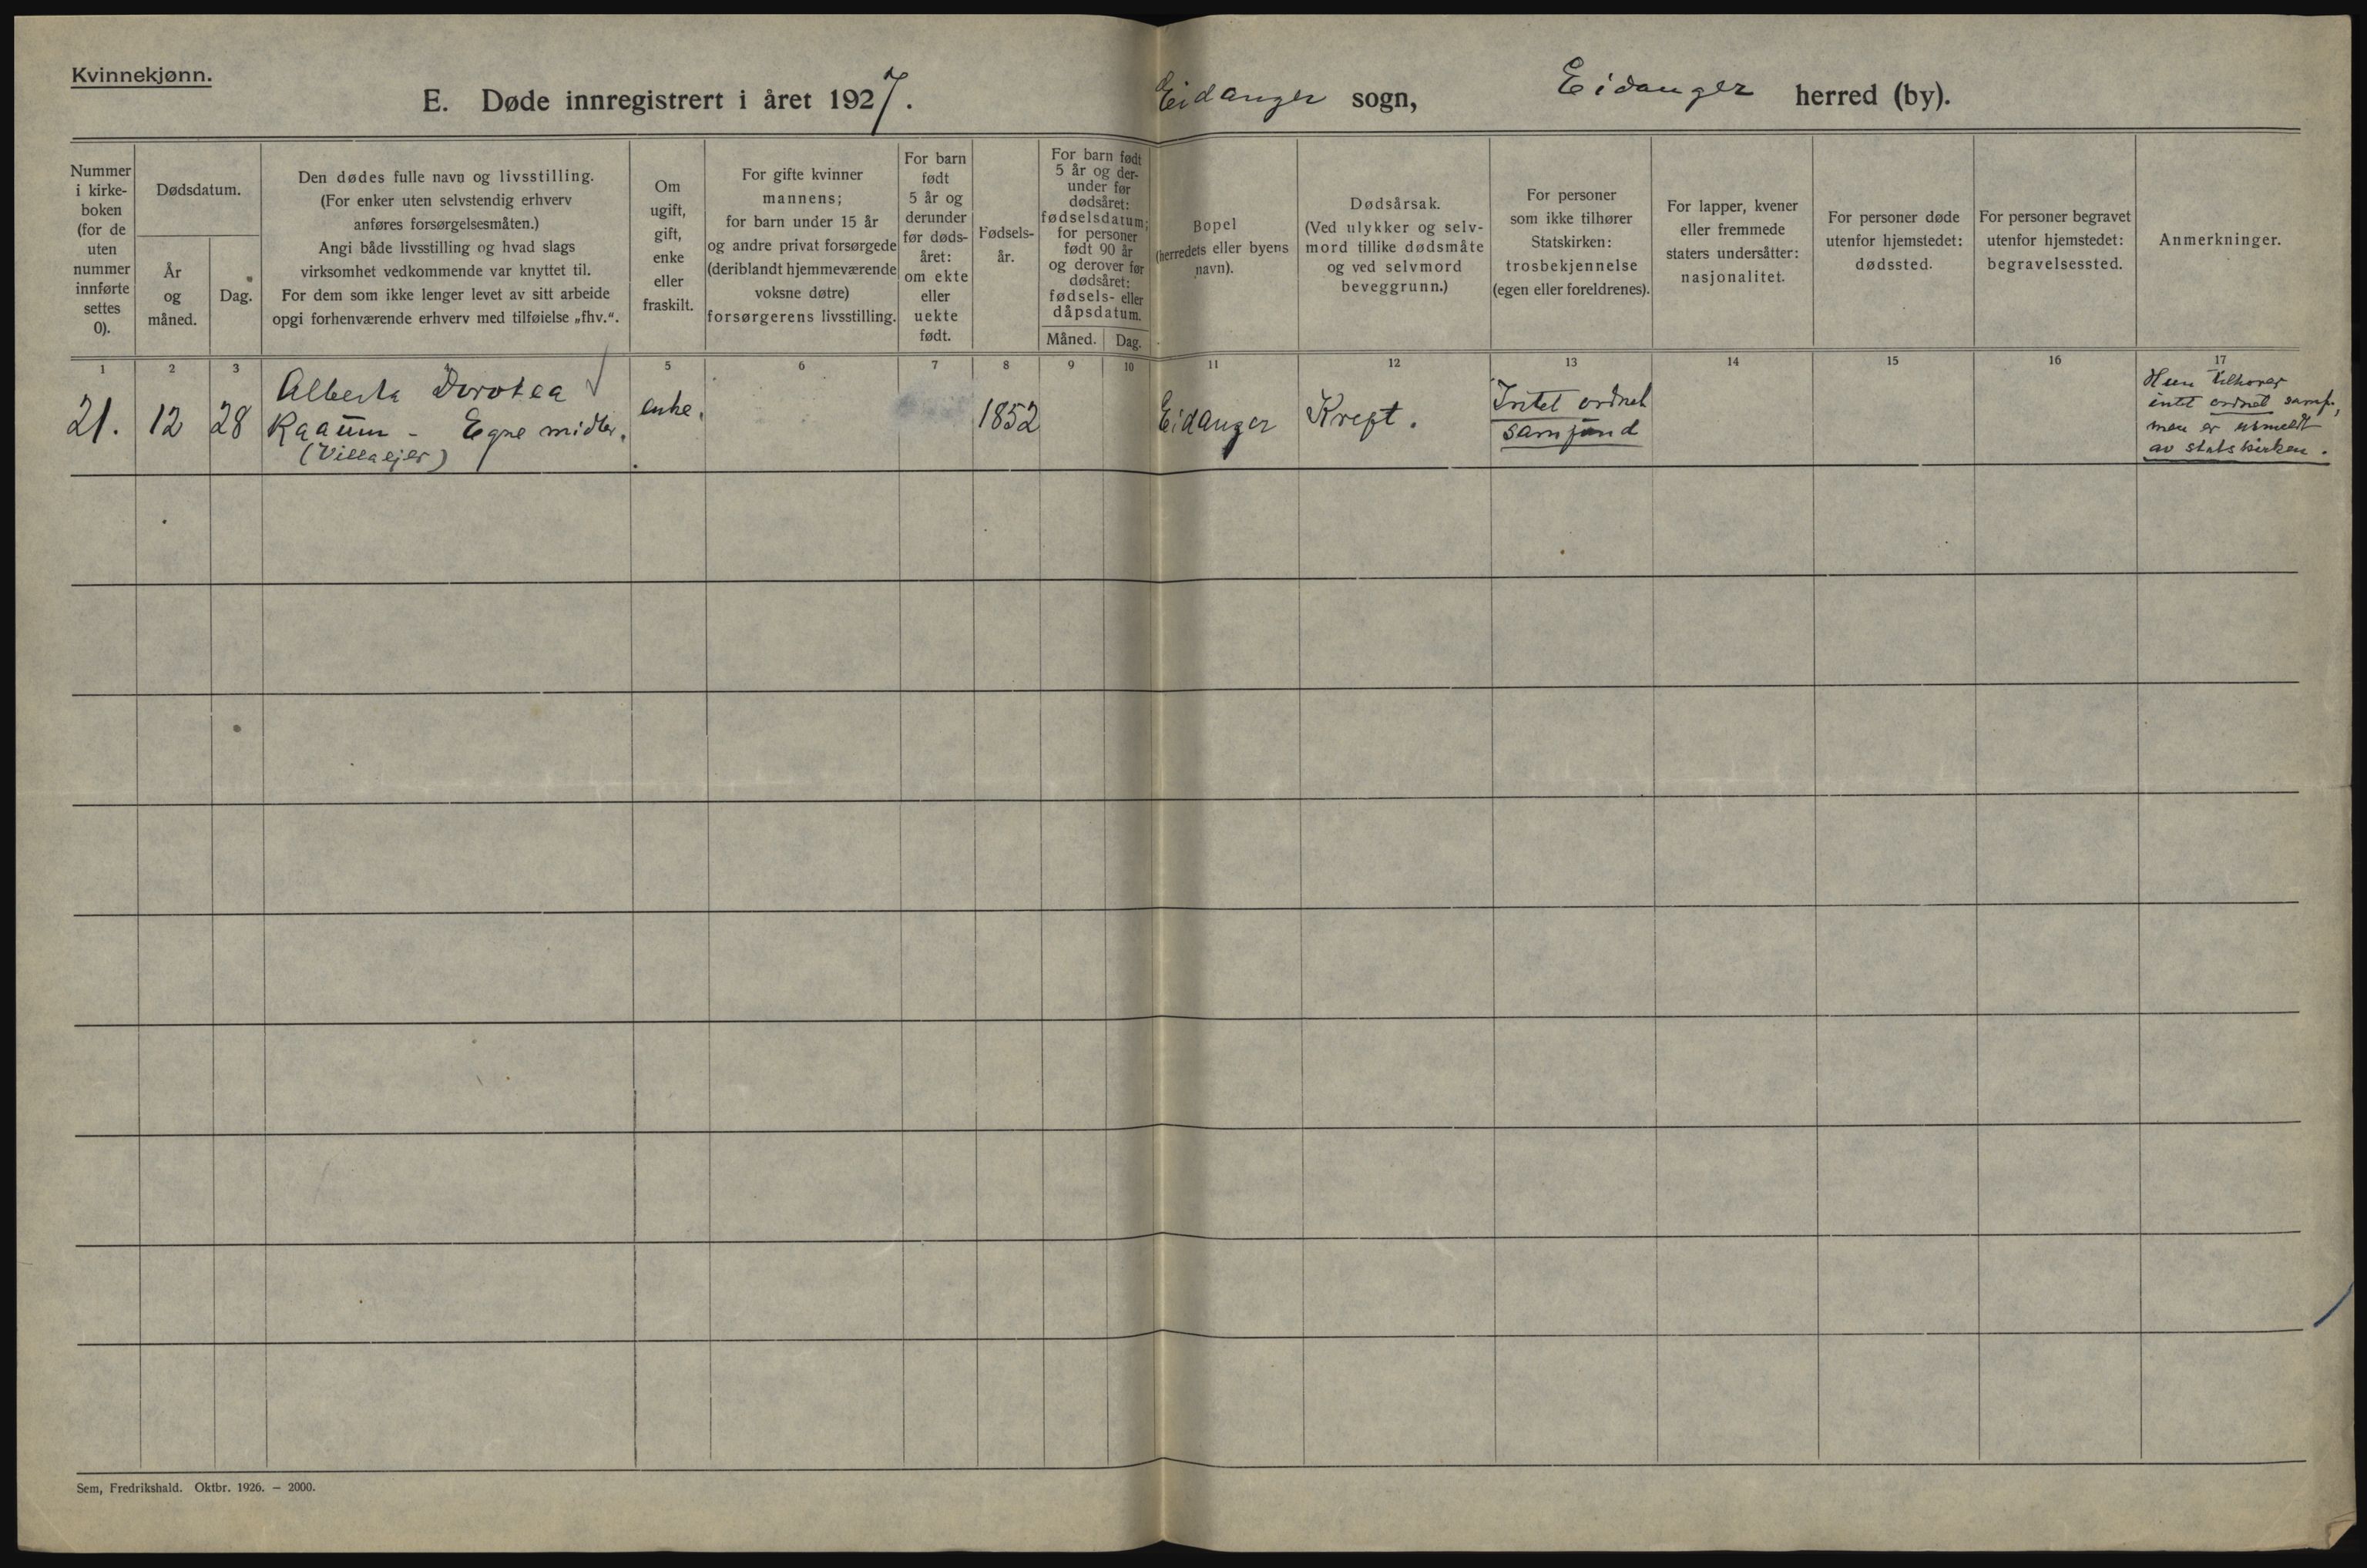 Kvinnekjønn.
E. Døde innregistrert i året 1927. Eidanger sogn, Eidanger herred (by).
Nummer
i kirke-
boken
(for de
uten
nummer
innførte
settes
0).
Dødsdatum.
År
og
måned.
Dag.
Den dødes fulle navn og livsstilling.
(For enker uten selvstendig erhverv
anføres forsørgelsesmåten.)
Angi både livsstilling og hvad slags
virksomhet vedkommende var knyttet til.
For dem som ikke lenger levet av sitt arbeide
opgi forhenværende erhverv med tilføielse „fhv.“.
Om
ugift,
gift,
enke
eller
fraskilt.
For gifte kvinner
mannens;
for barn under 15 år
og andre privat forsørgede
(deriblandt hjemmeværende
voksne døtre)
forsørgerens livsstilling.
For barn
født
5 år og
derunder
før døds-
året:
om ekte
eller
uekte
født.
Fødsels-
år.
For barn født
5 år og der-
under før
dødsåret:
fødselsdatum;
for personer
født 90 år
og derover før
dødsåret:
fødsels- eller
dåpsdatum.
Måned. Dag.
Bopel
(herredets eller byens
navn).
Dødsårsak.
(Ved ulykker og selv-
mord tillike dødsmåte
og ved selvmord
beveggrunn.)
For personer
som ikke tilhører
Statskirken:
trosbekjennelse
(egen eller foreldrenes).
For lapper, kvener
eller fremmede
staters undersåtter:
nasjonalitet.
For personer døde
utenfor hjemstedet:
dødssted.
For personer begravet
utenfor hjemstedet:
begravelsessted.
Anmerkninger.
1 2 3 5 6 7 8 9 10 11 12 13 14 15 16 17
21. 12 28
Alberta Dorotea
Raaum - Egne midler.
(Villaejer)
enke.
1852
Eidanger
Kreft.
Intet ordnet
samfund
Hun tilhører
intet ordnet samf.,
men er utmeldt
av statskirken.
Sem, Fredrikshald. Oktbr. 1926. – 2000.